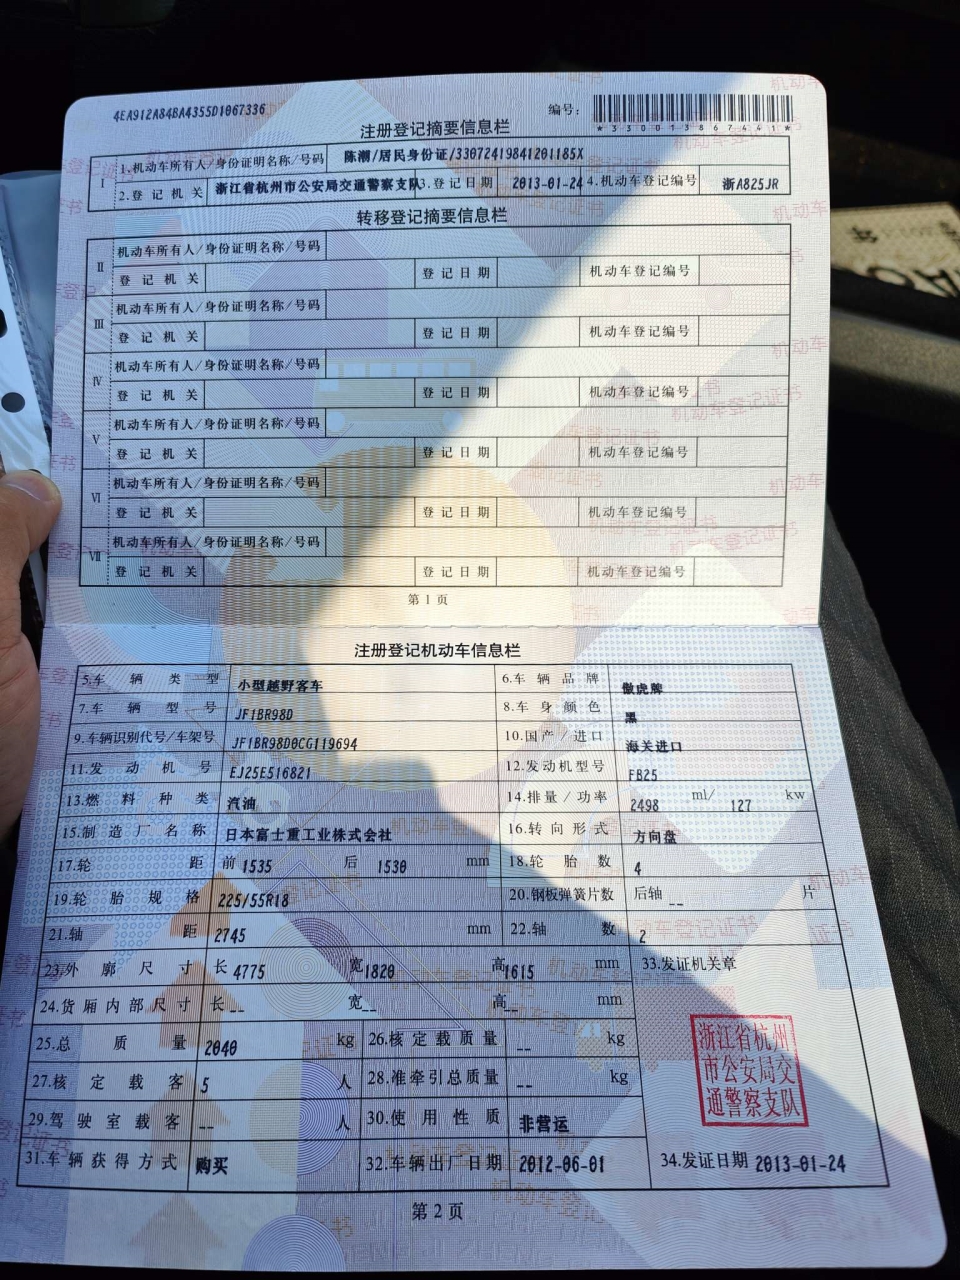 4EA912A84BA4355D1067336
编号:
*330013867441*
注册登记摘要信息栏
I 1.机动车所有人/身份证明名称/号码 陈潮/居民身份证/33072419841201185X
2.登记机关 浙江省杭州市公安局交通警察支队 3.登记日期 2013-01-24 4.机动车登记编号 浙A825JR
转移登记摘要信息栏
II 机动车所有人/身份证明名称/号码
登记机关 登记日期 机动车登记编号
III 机动车所有人/身份证明名称/号码
登记机关 登记日期 机动车登记编号
IV 机动车所有人/身份证明名称/号码
登记机关 登记日期 机动车登记编号
V 机动车所有人/身份证明名称/号码
登记机关 登记日期 机动车登记编号
VI 机动车所有人/身份证明名称/号码
登记机关 登记日期 机动车登记编号
VII 机动车所有人/身份证明名称/号码
登记机关 登记日期 机动车登记编号
第1页
注册登记机动车信息栏
5.车辆类型 小型越野客车 6.车辆品牌 傲虎牌
7.车辆型号 JF1BR98D 8.车身颜色 黑
9.车辆识别代号/车架号 JF1BR98D0CG119694 10.国产/进口 海关进口
11.发动机号 EJ25E516821 12.发动机型号 FB25
13.燃料种类 汽油 14.排量/功率 2498 ml/ 127 kw
15.制造厂名称 日本富士重工业株式会社 16.转向形式 方向盘
17.轮距 前 1535 后 1530 mm 18.轮胎数 4
19.轮胎规格 225/55R18 20.钢板弹簧片数 后轴 -- 片
21.轴距 2745 mm 22.轴数 2
23.外廓尺寸 长 4775 宽 1820 高 1615 mm 33.发证机关章
24.货厢内部尺寸 长 -- 宽 -- 高 -- mm
25.总质量 2040 kg 26.核定载质量 -- kg
27.核定载客 5 人 28.准牵引总质量 -- kg
29.驾驶室载客 -- 人 30.使用性质 非营运
浙江省杭州
市公安局交
通警察支队
31.车辆获得方式 购买 32.车辆出厂日期 2012-06-01 34.发证日期 2013-01-24
第2页